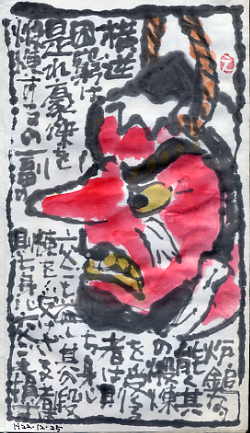 横逆
困窮は
是れ豪傑を
煅煉するの一副の
炉錘なり
能く其
の煅煉
を受くる
者は則
ち身心
煉を受けざる者
H22.12.25